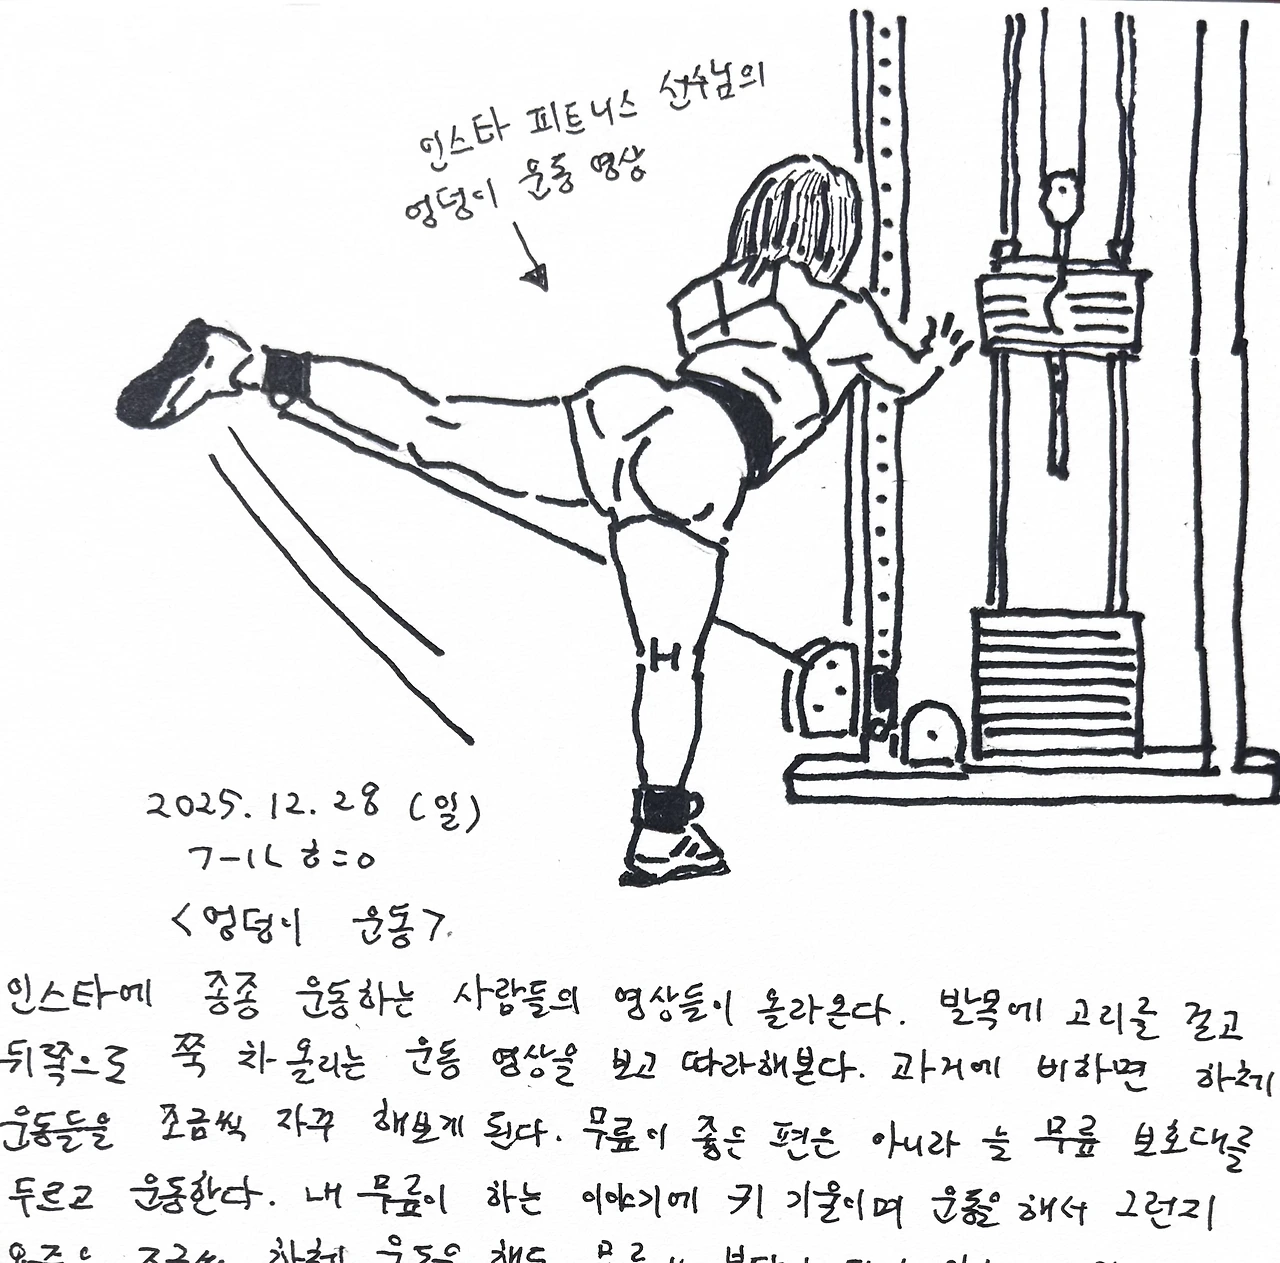 인스타 피트니스 선수님의
엉덩이 운동 영상
2025. 12. 28 (일)
<엉덩이 운동>
인스타에 종종 운동하는 사람들의 영상들이 올라온다. 발목에 고리를 걸고
뒤쪽으로 쭉 차올리는 운동 영상을 보고 따라해본다. 과거에 비하면 하체
운동들을 조금씩 자꾸 해보게 된다. 무릎이 좋은 편은 아니라 늘 무릎 보호대를
두르고 운동한다. 내 무릎이 하는 이야기에 귀 기울이며 운동을 해서 그런지